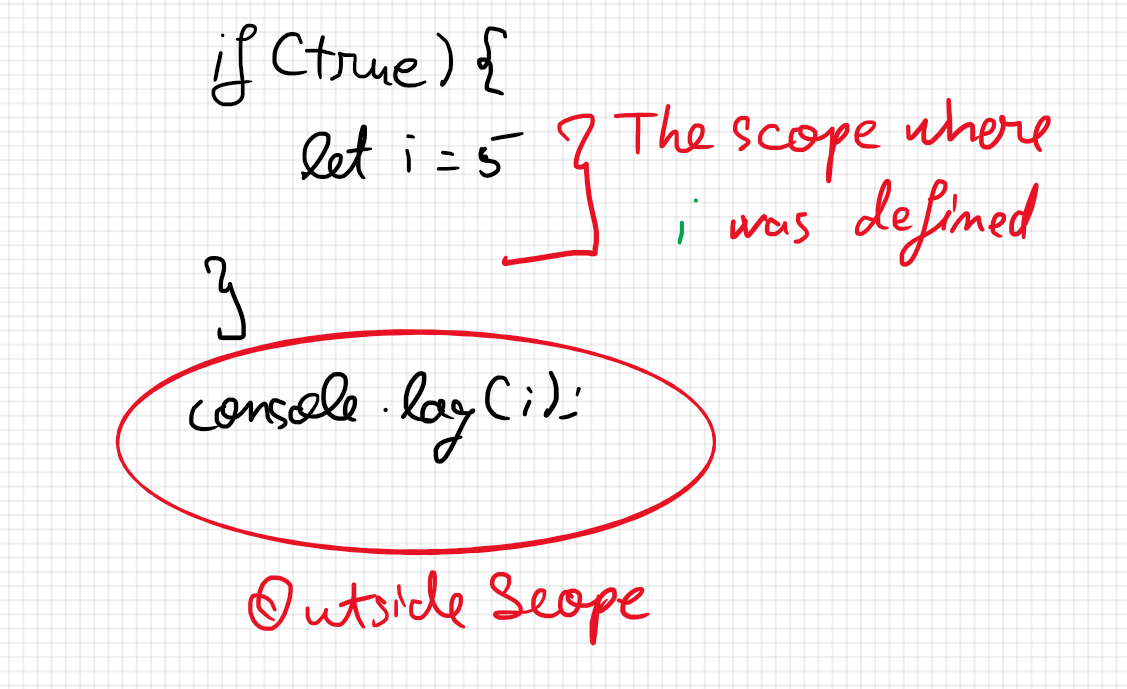 if (true) {
let i = 5
The scope where
i was defined
}
console.log(i);
Outside Scope